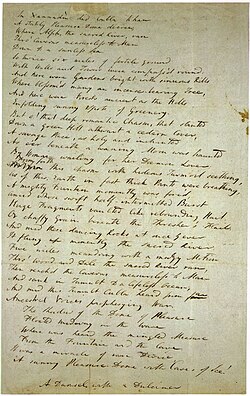 In Xannadù did Cubla Khan
A stately Pleasure-Dome decree;
Where Alph, the sacred River, ran
Thro' Caverns measureless to Man
Down to a sunless Sea.
So twice six miles of fertile ground
With Walls and Towers were compass'd round:
And here were Gardens bright with sinuous Rills
Where blossom'd many an incense-bearing Tree,
And here were Forests ancient as the Hills
Enfolding sunny Spots of Greenery.
But o! that deep romantic Chasm, that slanted
Down a green Hill athwart a cedarn Cover,
A savage Place, as holy and inchanted
As e'er beneath a waning Moon was haunted
By Woman wailing for her Dæmon Lover:
From this Chasm with hideous Turmoil seething,
As if this Earth in fast thick Pants were breathing,
A mighty Fountain momently was forc'd,
Amid whose swift half-intermitted Burst
Huge Fragments vaulted like rebounding Hail,
Or chaffy Grain beneath the Thresher's Flail:
And mid these dancing Rocks at once & ever
It flung up momently the sacred River.
Five miles meandering with a mazy Motion
Thro' Wood and Dale the sacred River ran,
Then reach'd the Caverns measureless to Man
And sank in Tumult to a lifeless Ocean;
And mid this Tumult Cubla heard from far
Ancestral Voices prophesying War.
The Shadow of the Dome of Pleasure
Floated midway on the Wave
Where was heard the mingled Measure
From the Fountain and the Cave.
It was a miracle of rare Device,
A sunny Pleasure-Dome with Caves of Ice!
A Damsel with a Dulcimer